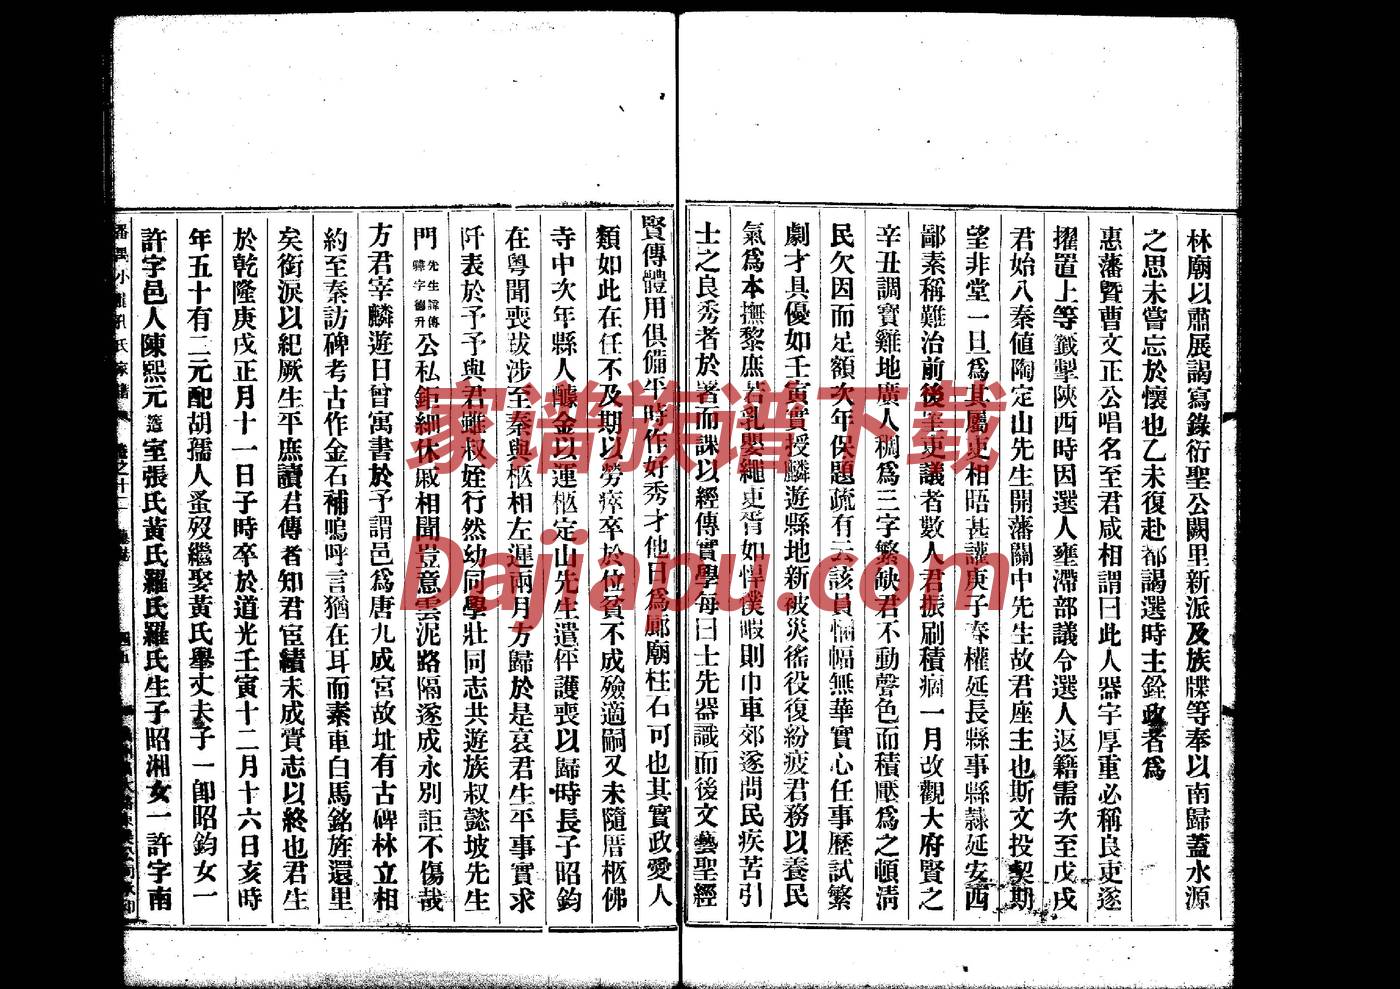 林廟以肅展謁寫錄衍聖公闕里新派及族牒等奉以南歸蓋水源
之思未嘗忘於懷也乙未復赴都謁選時主銓政者爲
惠藩暨曹文正公唱名至君咸相謂曰此人器宇厚重必稱良吏遂
擢置上等籤掣陝西時因選人壅滯部議令選人返籍需次至戊戌
君始入秦値陶定山先生開藩關中先生故君座主也斯文投契期
望非常一旦爲其屬吏相晤甚讙庚子春權延長縣事縣隸延安西
鄙素稱難治前後宰吏議者數人君振刷積痼一月改觀大府賢之
辛丑調寶雞地廣人稠爲三字繁缺君不動聲色而積壓爲之頓淸
民欠因而足額次年保題疏有云該員悃愊無華實心任事歷試繁
劇才具優如壬寅實授麟遊縣地新被災徭役復紛疲君務以養民
氣爲本撫黎庶若乳嬰繩吏胥如悍僕暇則巾車郊遂問民疾苦引
士之良秀者於署而課以經傳實學每曰士先器識而後文藝聖經
賢傳體用俱備平時作好秀才他日爲廊廟柱石可也其實政愛人
類如此在任不及期以勞瘁卒於位貧不成殮適嗣又未隨厝柩佛
寺中次年縣人醵金以運柩定山先生遣伻護喪以歸時長子昭鈞
在粵聞喪跋涉至秦與柩相左遲兩月方歸於是哀君生平事實求
阡表於予予與君雖叔姪行然幼同學壯同志共遊族叔懿坡先生
門先生諱傳驊字德升公私鉅細休戚相聞豈意雲泥路隔遂成永別詎不傷哉
方君宰麟遊日曾寓書於予謂邑爲唐九成宮故址有古碑林立相
約至秦訪碑考古作金石補嗚呼言猶在耳而素車白馬銘旌還里
矣銜淚以紀厥生平庶讀君傳者知君宦績未成賫志以終也君生
於乾隆庚戌正月十一日子時卒於道光壬寅十二月十六日亥時
年五十有二元配胡孺人蚤歿繼娶黃氏舉丈夫子一卽昭鈞女一
許字邑人陳熙元簉室張氏黃氏羅氏羅氏生子昭湘女一許字南
番禺小龍孔氏家譜 卷之十二
家谱族谱下载
Dajiapu.com